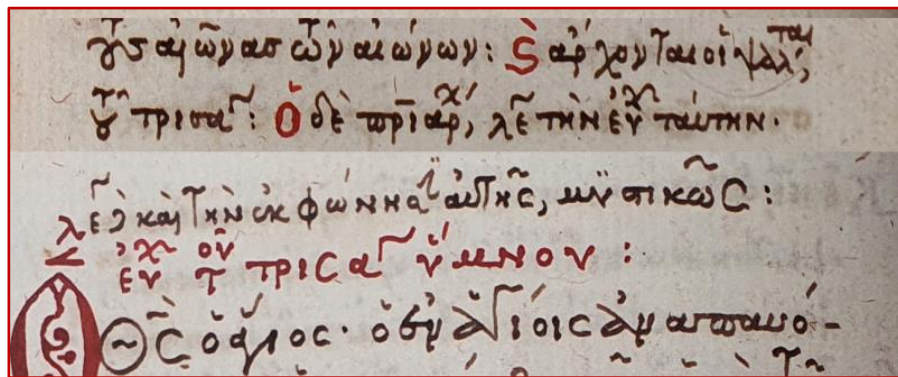 τοὺς αἰῶνας τῶν αἰώνων: Ϛ̀ ἄρχονται οἱ ψάλται,
τοῦ τρισαγ: Ὁ δὲ πριάρχ, λέ τὴν εὐχ ταύτην.
καὶ τὴν ἐκφώνησ αὐτῆς, μυστικῶς:
εὐχ τοῦ τρισαγ ὕμνου:
Ὁ Θς ὁ ἅγιος· ὁ ἐν ἁγίοις ἀναπαυό-